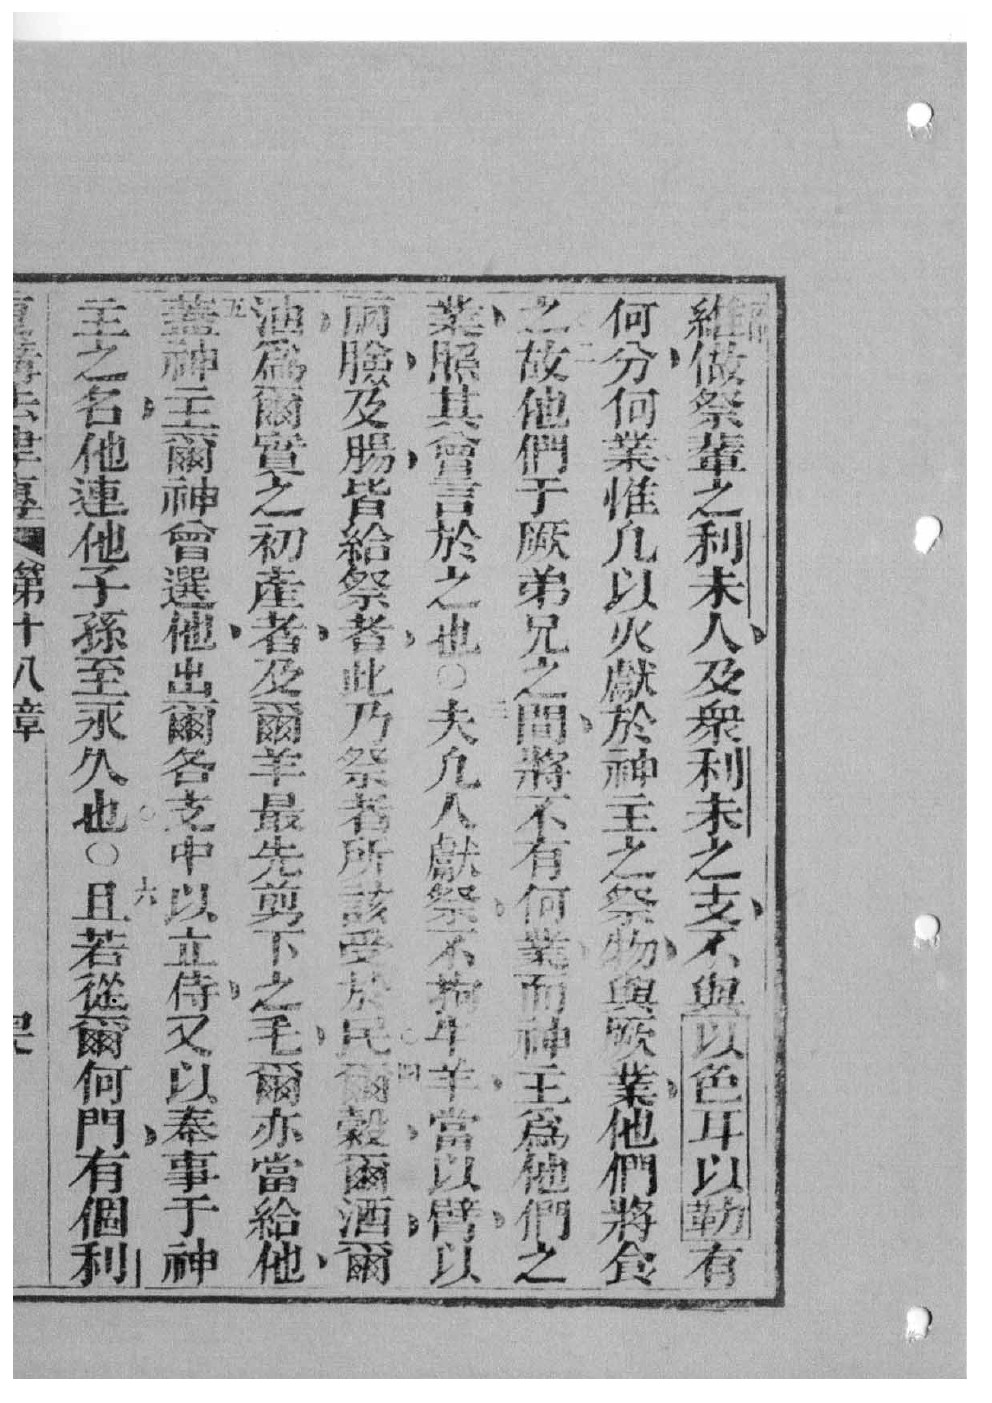 維做祭輩之利未人及衆利未之支不與以色耳以勒有
何分何業惟凡以火獻於神主之祭物與厥業他們將食
之二故他們于厥弟兄之間將不有何業而神主爲他們之
業照其曾言於之也〇三夫凡人獻祭不拘牛羊當以臂以
兩臉及腸皆給祭者此乃祭者所該受於民四爾穀爾酒爾
油爲爾實之初產者及爾羊最先剪下之毛爾亦當給他
五蓋神主爾神曾選他出爾各支中以立侍又以奉事于神
主之名他連他子孫至永久也〇六且若從爾何門有個利
復講法律傳 第十八章